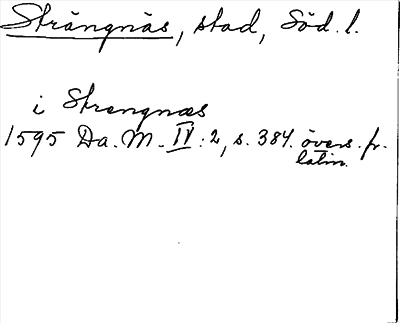 Strängnäs, stad, Söd. l.
i Strengnæs
1595 Da. M. IV: 2, s. 384. övers. fr.
latin.